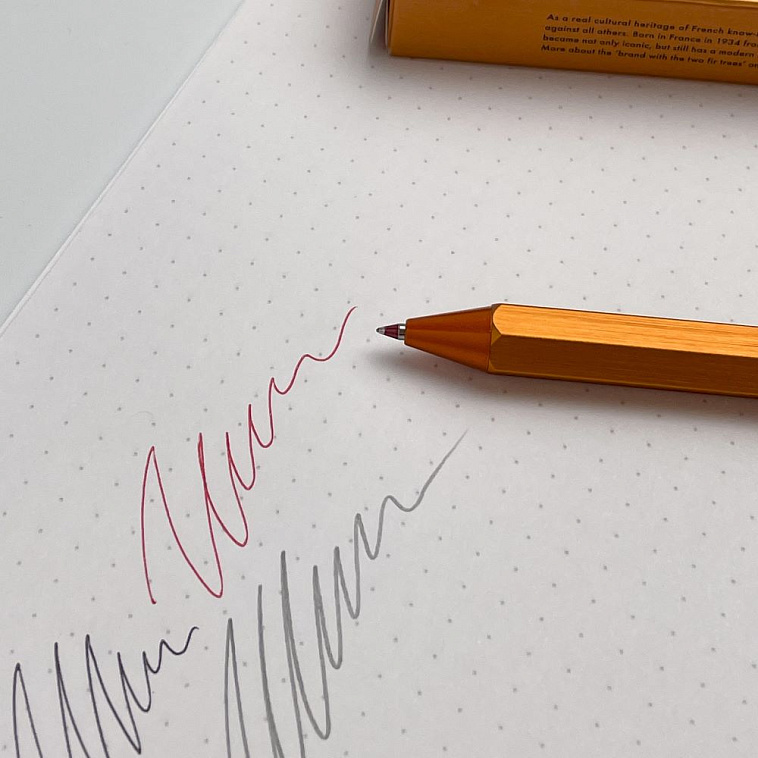 As a real cultural heritage of French know-
against all others. Born in France in 1934
became not only iconic, but still has a modern
More about the "brand with the two fir trees"